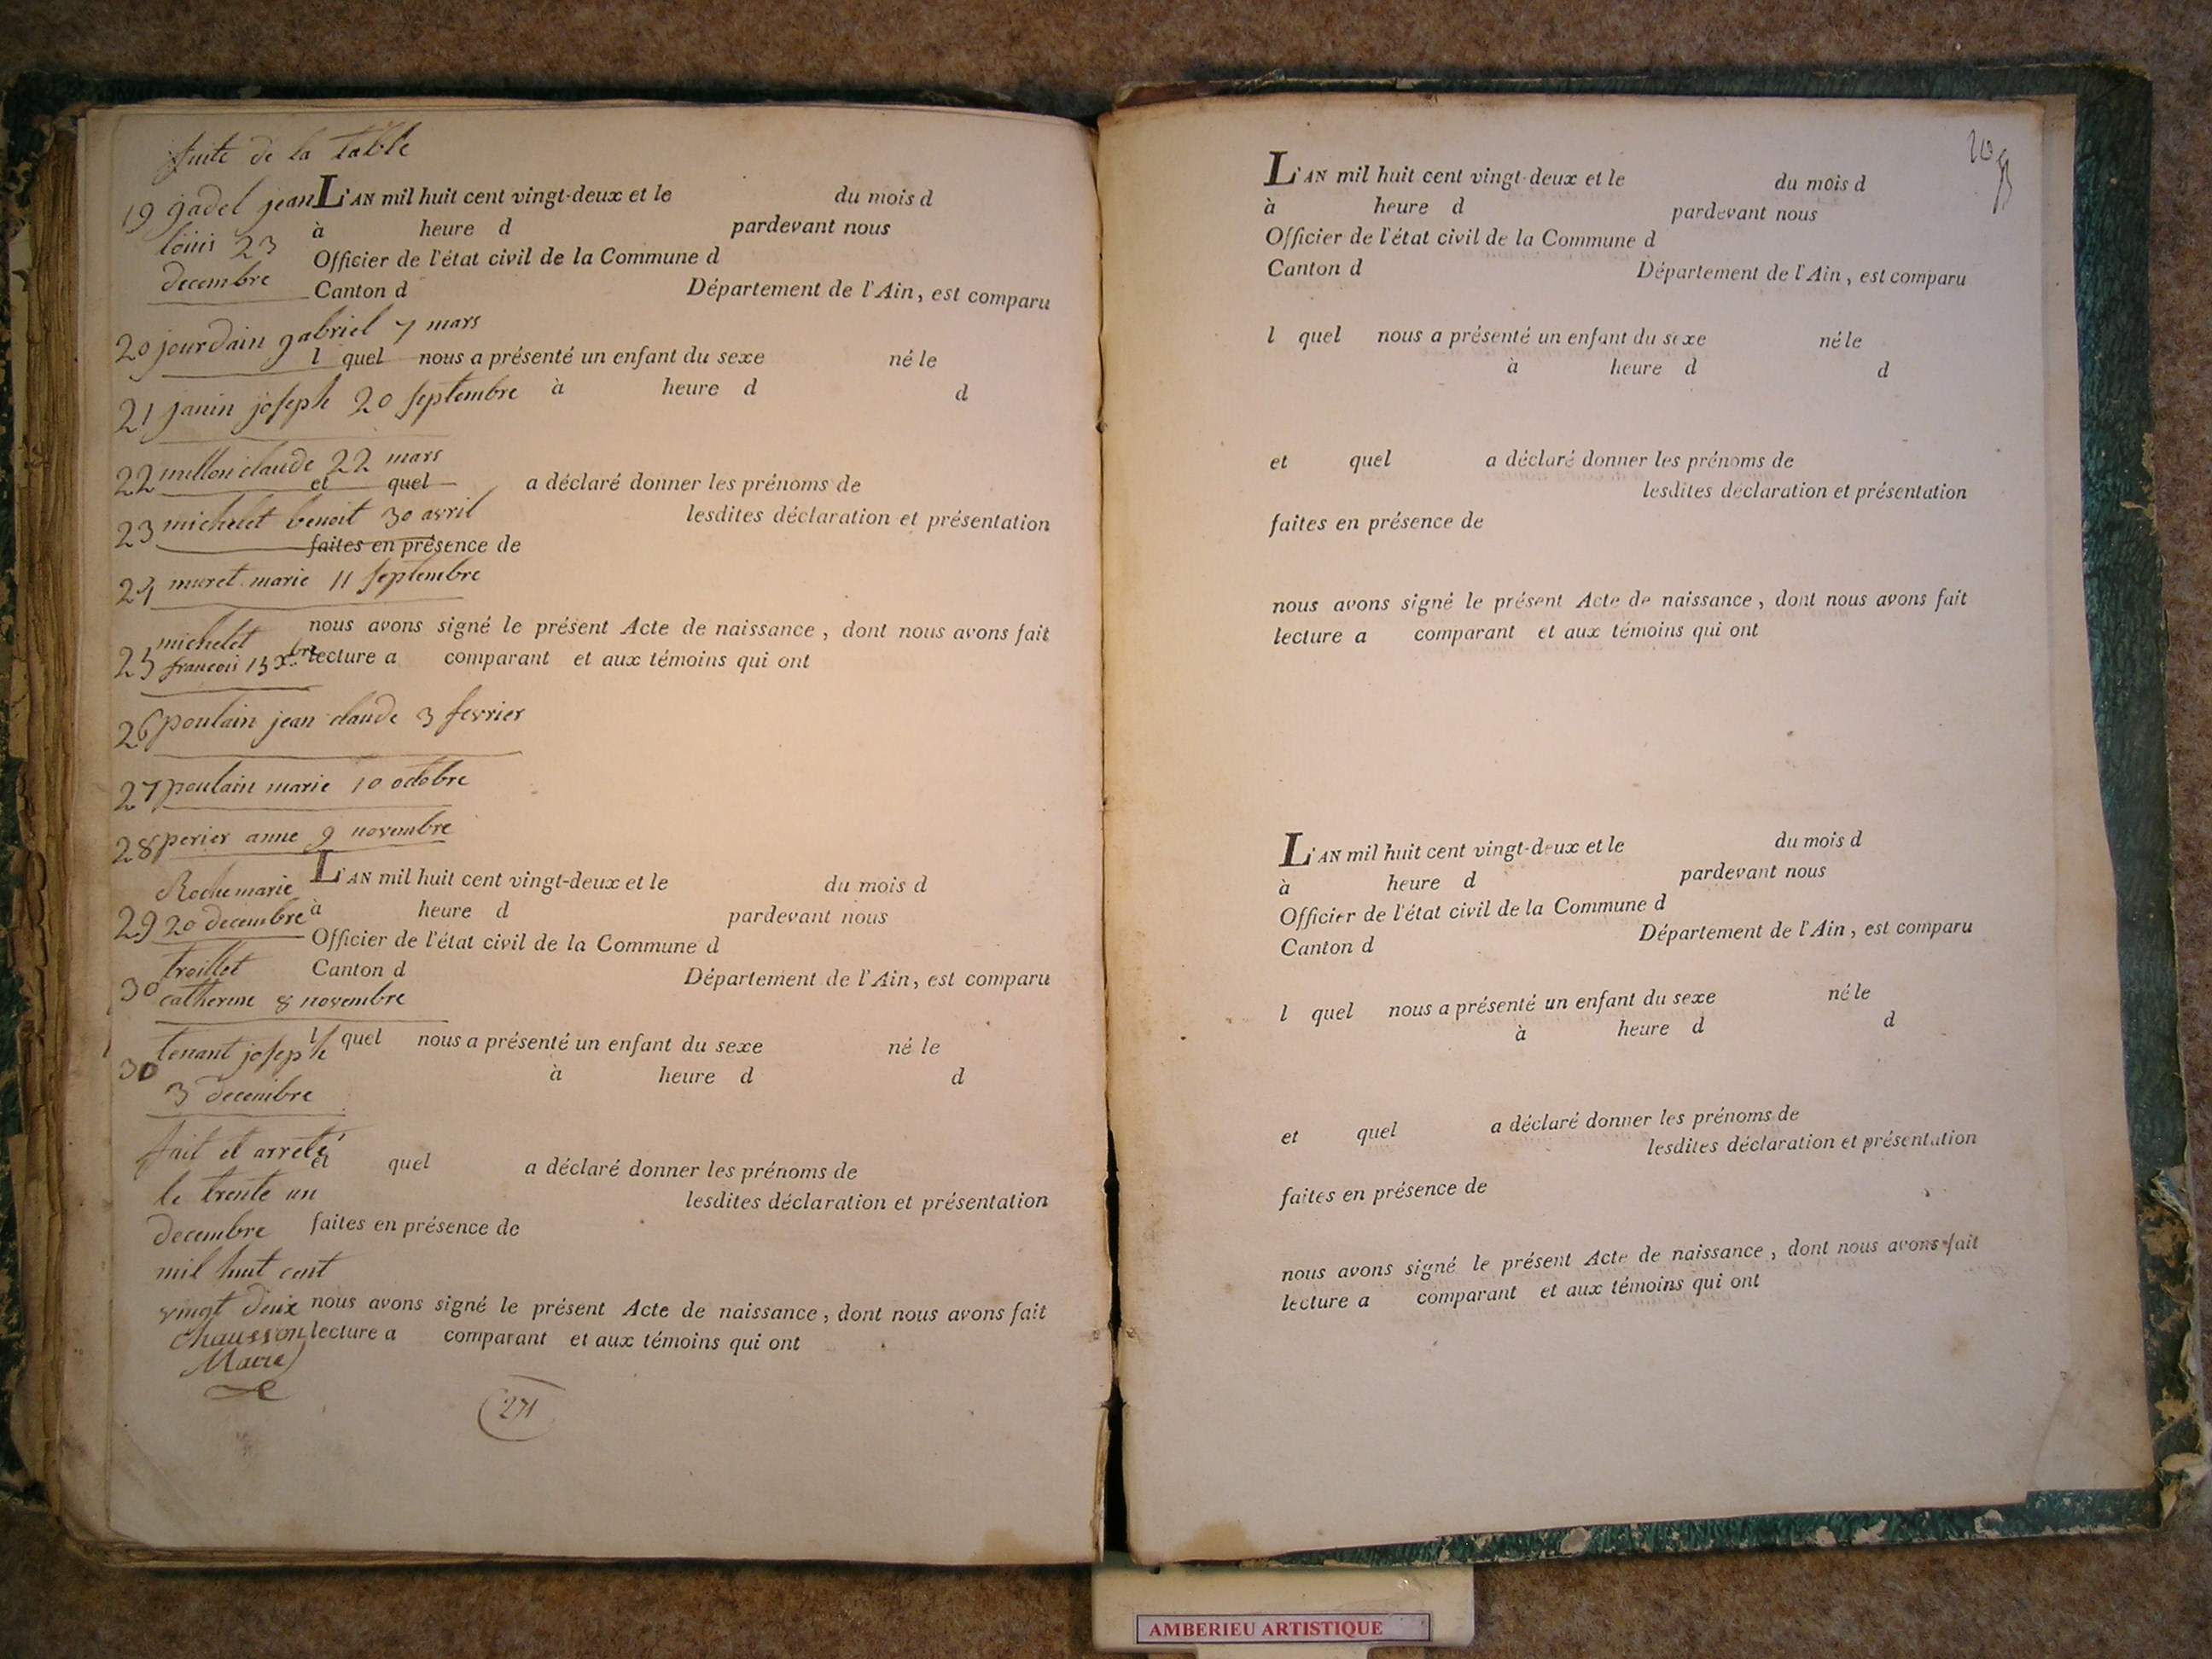 suite de la table
19 gadel jean
louis 23
decembre
L'AN mil huit cent vingt-deux et le du mois d
à heure d pardevant nous
Officier de l'état civil de la Commune d
Canton d Département de l'Ain, est comparu
20 jourdain gabriel 7 mars
l quel nous a présenté un enfant du sexe né le
21 janin joseph 20 septembre
à heure d d
22 millon claude 22 mars
et quel a déclaré donner les prénoms de
23 michelet benoit 30 avril
lesdites déclaration et présentation
faites en présence de
24 muret marie 11 septembre
nous avons signé le présent Acte de naissance, dont nous avons fait
25 michelet
francois 15 xbre
lecture a comparant et aux témoins qui ont
26 poulain jean claude 3 fevrier
27 poulain marie 10 octobre
28 perier anne 9 novembre
L'AN mil huit cent vingt-deux et le du mois d
Roche marie
29 20 decembre
à heure d pardevant nous
Officier de l'état civil de la Commune d
30 troillet
catherine 8 novembre
Canton d Département de l'Ain, est comparu
l quel nous a présenté un enfant du sexe né le
30 tenant joseph
3 decembre
à heure d d
fait et arreté
et quel a déclaré donner les prénoms de
le trente un
lesdites déclaration et présentation
decembre
faites en présence de
mil huit cent
vingt deux
nous avons signé le présent Acte de naissance, dont nous avons fait
Chausson
lecture a comparant et aux témoins qui ont
Maire
271
L'AN mil huit cent vingt-deux et le du mois d
à heure d pardevant nous
Officier de l'état civil de la Commune d
Canton d Département de l'Ain, est comparu
l quel nous a présenté un enfant du sexe né le
à heure d d
et quel a déclaré donner les prénoms de
lesdites déclaration et présentation
faites en présence de
nous avons signé le présent Acte de naissance, dont nous avons fait
lecture a comparant et aux témoins qui ont
L'AN mil huit cent vingt-deux et le du mois d
à heure d pardevant nous
Officier de l'état civil de la Commune d
Canton d Département de l'Ain, est comparu
l quel nous a présenté un enfant du sexe né le
à heure d d
et quel a déclaré donner les prénoms de
lesdites déclaration et présentation
faites en présence de
nous avons signé le présent Acte de naissance, dont nous avons fait
lecture a comparant et aux témoins qui ont
AMBERIEU ARTISTIQUE